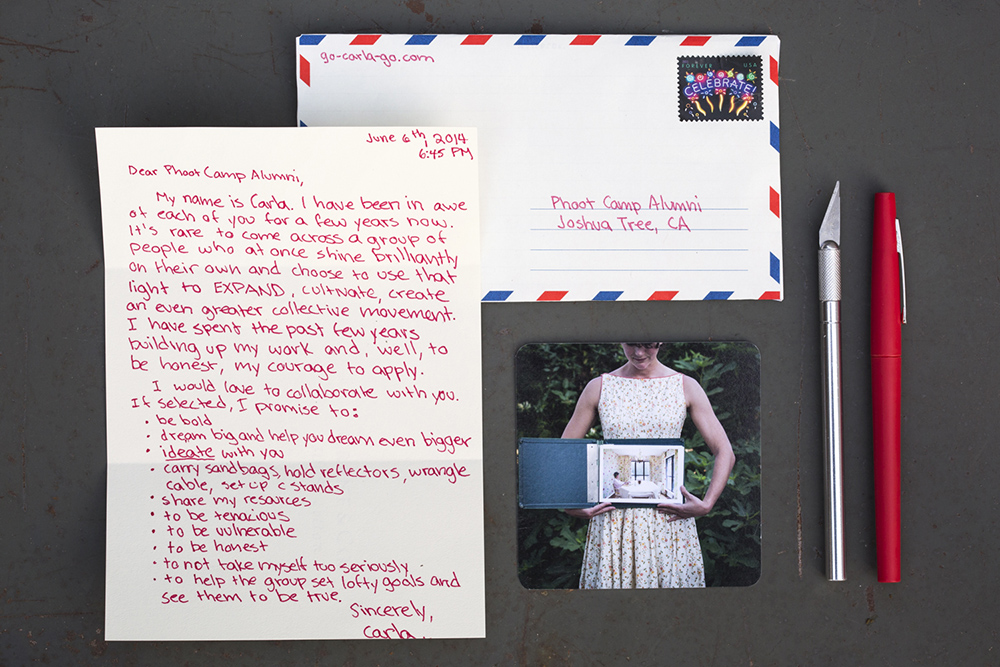 go-carla-go.com
FOREVER USA
CELEBRATE!
Phoot Camp Alumni
Joshua Tree, CA
June 6th, 2014
6:45 PM
Dear Phoot Camp Alumni,
My name is Carla. I have been in awe
of each of you for a few years now.
It's rare to come across a group of
people who at once shine brilliantly
on their own and choose to use that
light to EXPAND, cultivate, create
an even greater collective movement.
I have spent the past few years
building up my work and, well, to
be honest, my courage to apply.
I would love to collaborate with you.
If selected, I promise to:
• be bold
• dream big and help you dream even bigger
• ideate with you
• carry sandbags, hold reflectors, wrangle
cable, set up c stands
• share my resources
• to be tenacious
• to be vulnerable
• to be honest
• to not take myself too seriously.
• to help the group set lofty goals and
see them to be true.
Sincerely,
Carla.